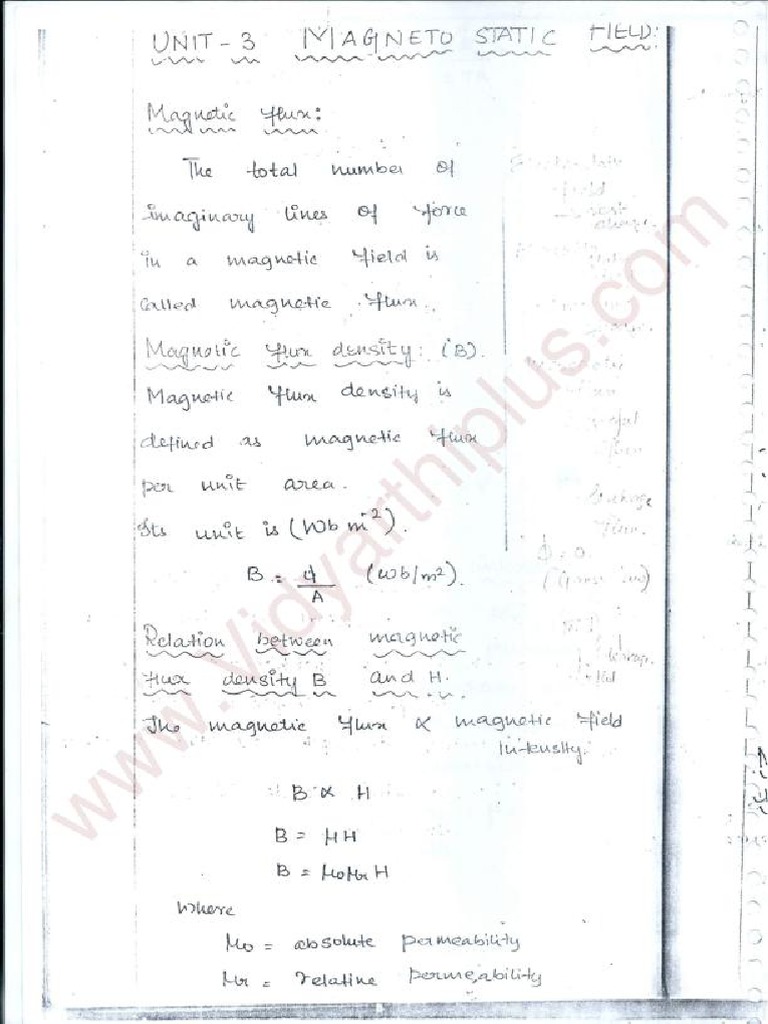 UNIT - 3 MAGNETO STATIC FIELD:
Magnetic flux:
The total number of
imaginary lines of force
in a magnetic field is
called magnetic flux.
Magnetic flux density: (B).
Magnetic flux density is
defined as magnetic flux
per unit area.
Its unit is (Wb m⁻²).
B = ϕ/A (Wb/m²).
Relation between magnetic
flux density B and H.
The magnetic flux ∝ magnetic field
intensity.
B ∝ H
B = μH
B = μ₀μᵣH
where
μ₀ = absolute permeability
μᵣ = relative permeability
www.Vidyarthiplus.com